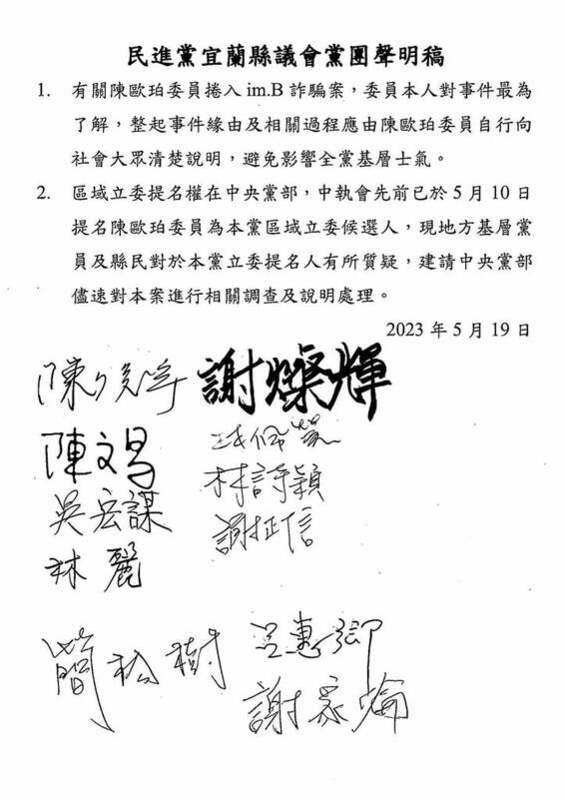 民進黨宜蘭縣議會黨團聲明稿
1. 有關陳歐珀委員捲入 im.B 詐騙案，委員本人對事件最為
了解，整起事件緣由及相關過程應由陳歐珀委員自行向
社會大眾清楚說明，避免影響全黨基層士氣。
2. 區域立委提名權在中央黨部，中執會先前已於 5 月 10 日
提名陳歐珀委員為本黨區域立委候選人，現地方基層黨
員及縣民對於本黨立委提名人有所質疑，建請中央黨部
儘速對本案進行相關調查及說明處理。
2023 年 5 月 19 日
謝燦輝
陳文昌
林詩穎
吳宏謀
謝正信
林麗
簡松樹
呂惠
謝家